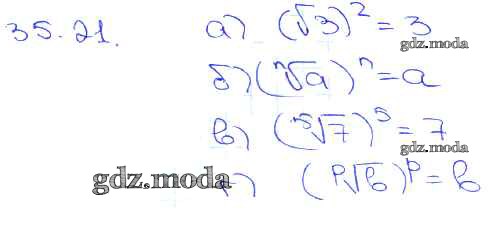 35.21. а) (√3)² = 3
gdz.moda
б) (ⁿ√a)ⁿ = a
в) (⁵√7)⁵ = 7
gdz.moda
gdz.moda г) (ᵖ√b)ᵖ = b